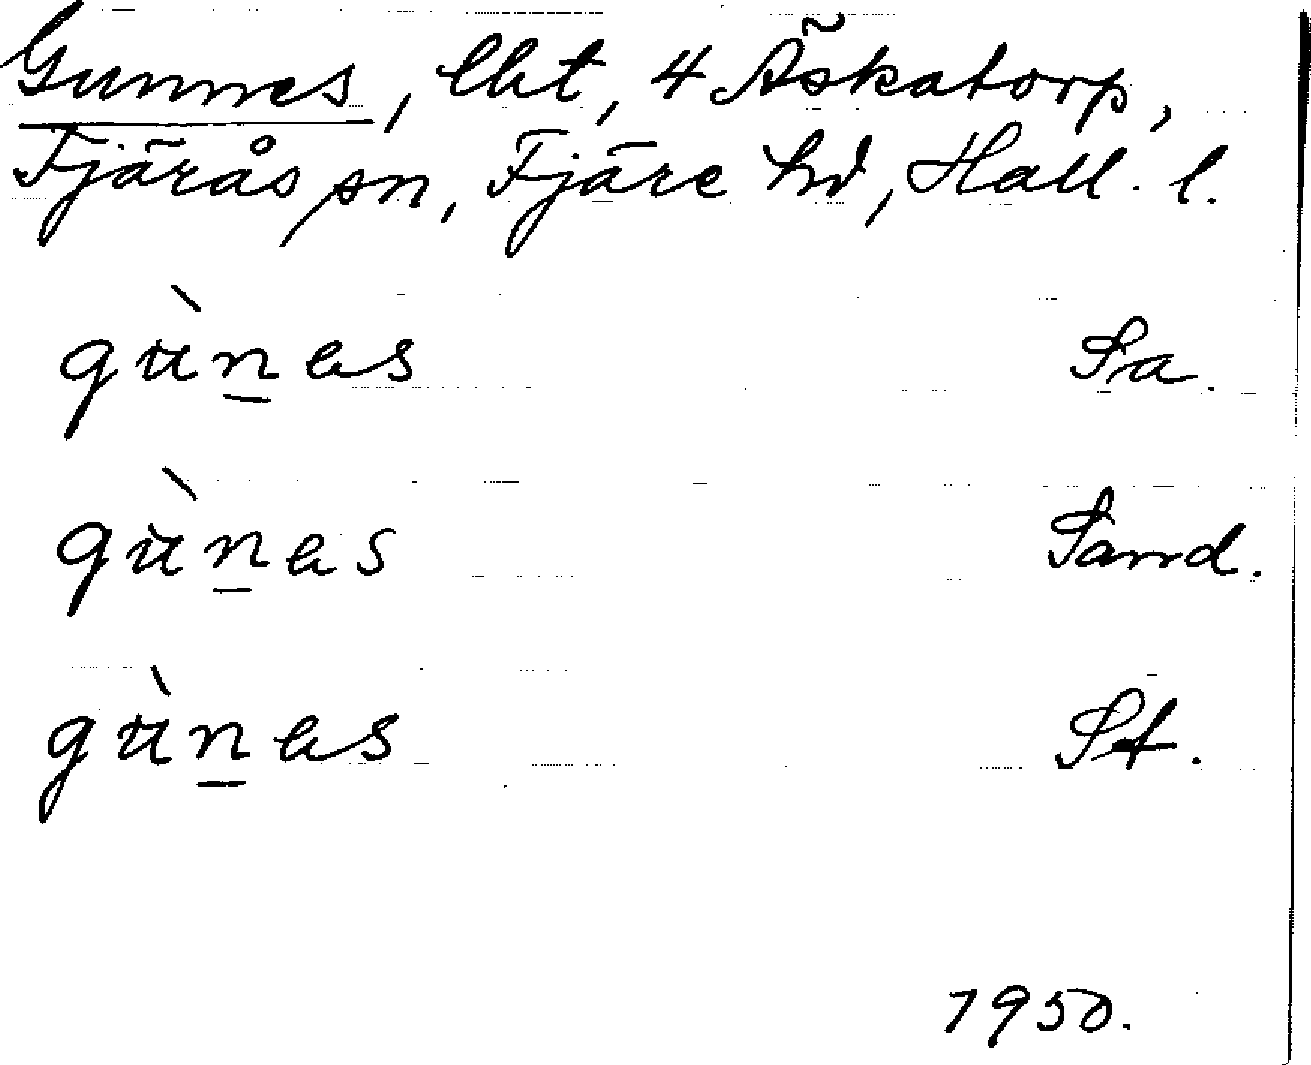 Gunnes, lht, 4 Äskatorp,
Fjärås sn, Fjäre hd, Hall. l.
gù̀n̲as Sa.
gù̀n̲as Sand.
gù̀n̲as St.
1950.